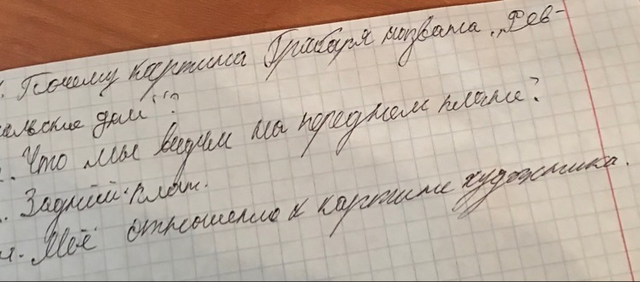 . Почему картина Грабаря названа „Фев-
альские дни"?
. Что мы видим на переднем плане?
. Задний план.
. Моё отношение к картине художника.